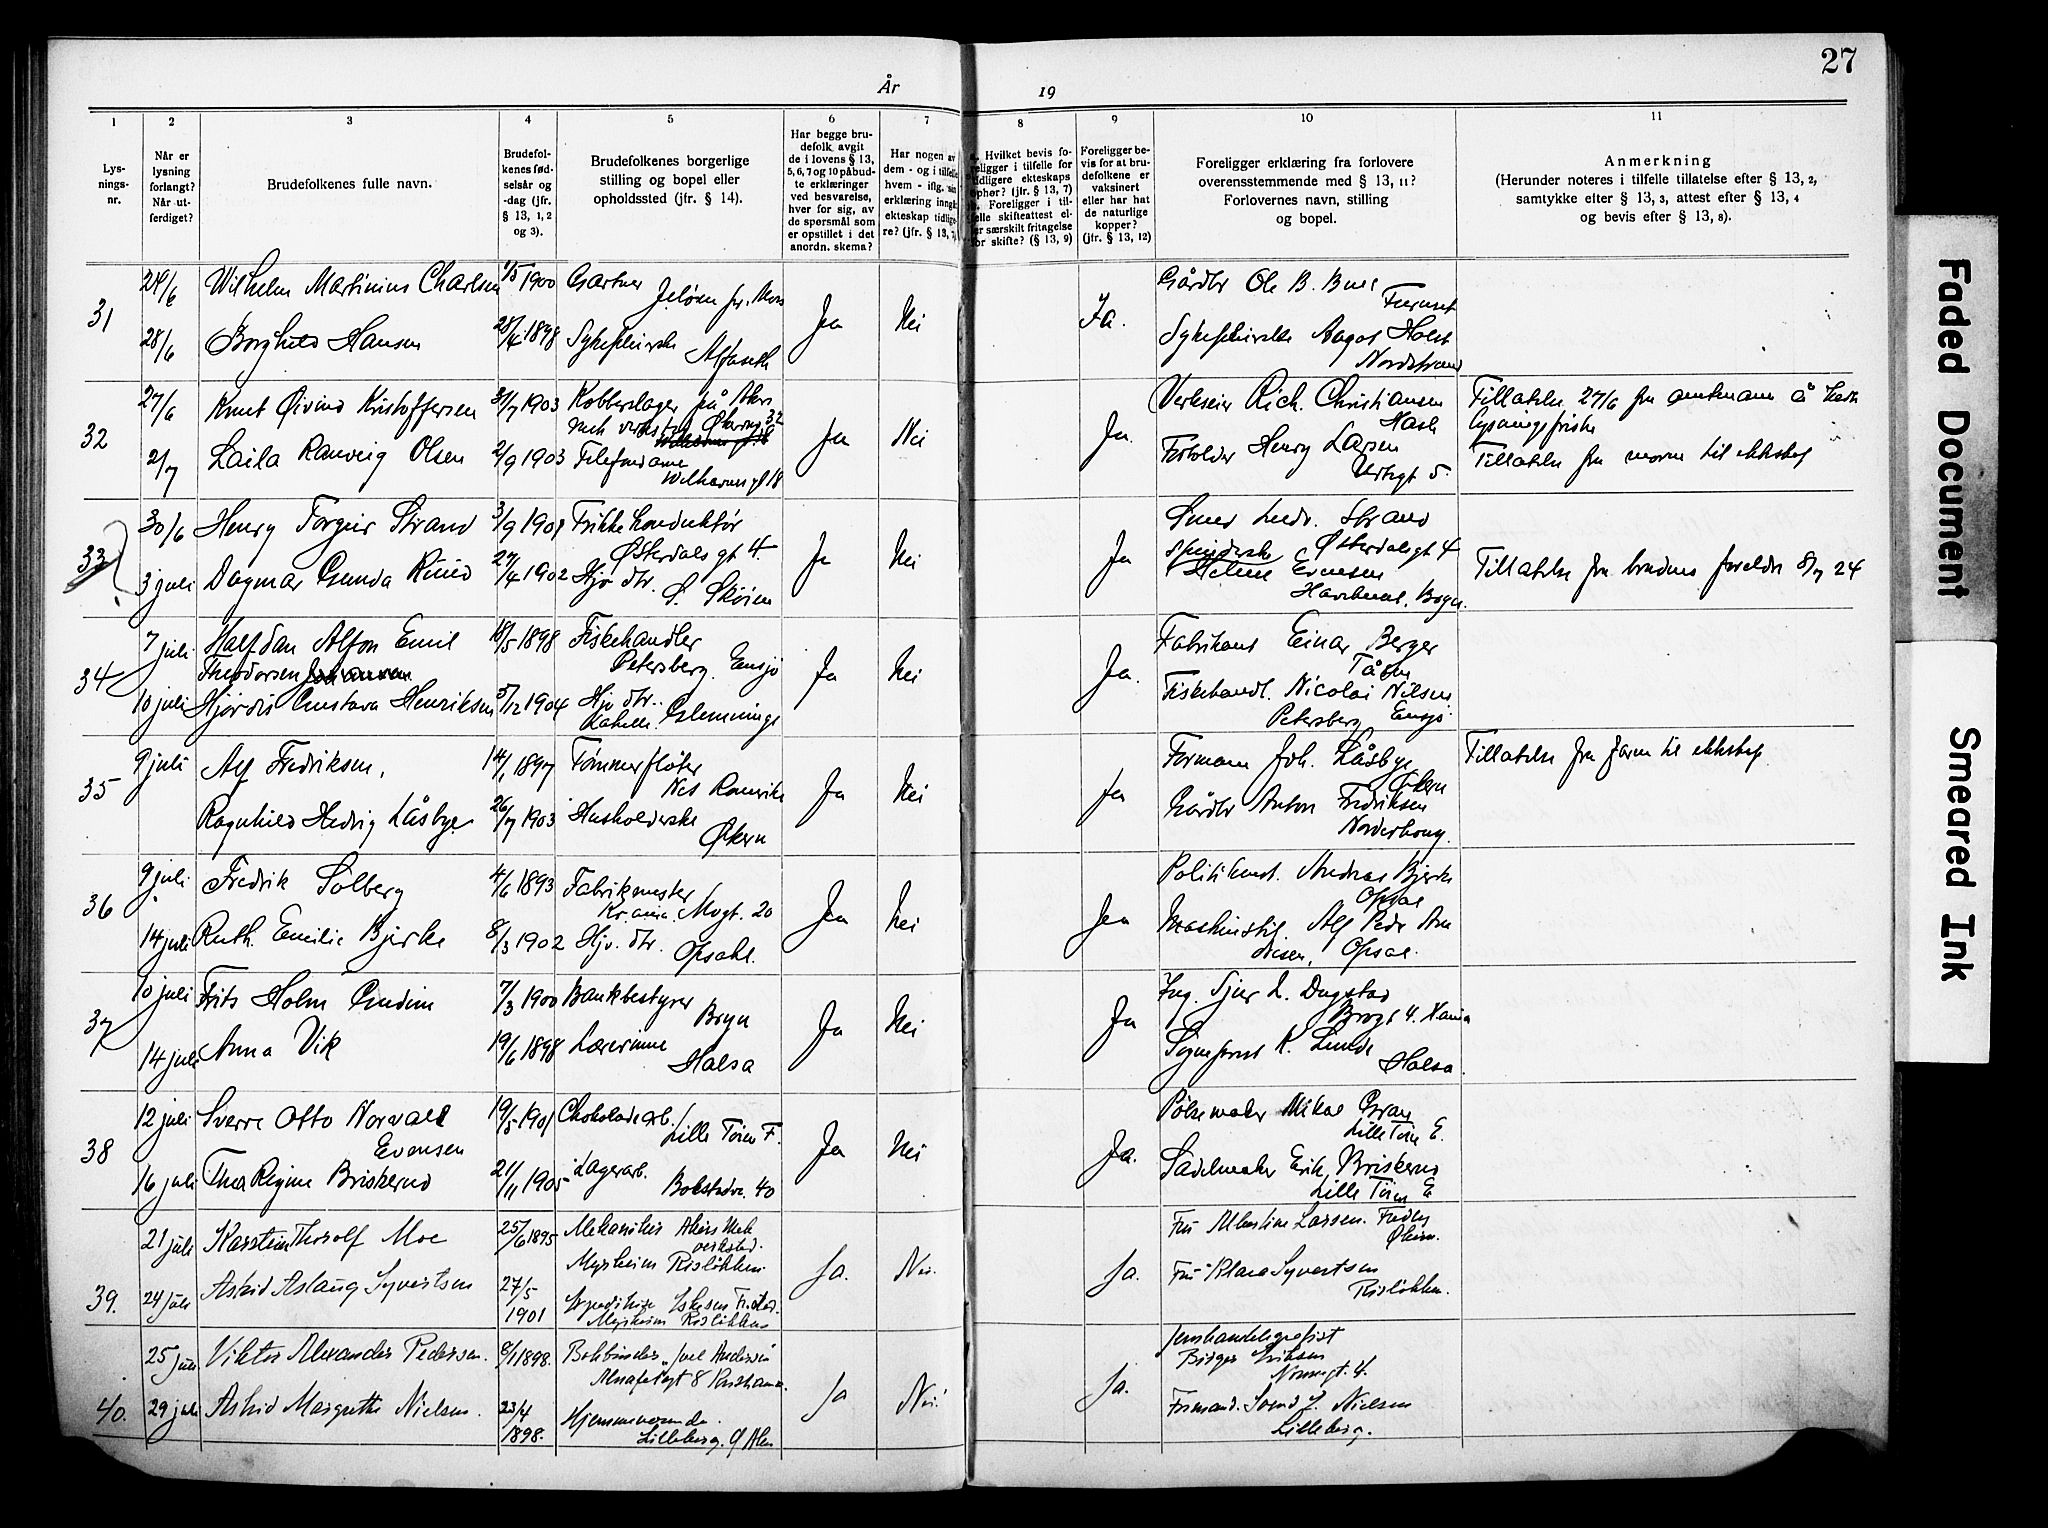 27
År 19
1 2 3 4 5 6 7 8 9 10 11
Lys-
nings-
nr.
Når er
lysning
forlangt?
Når ut-
ferdiget?
Brudefolkenes fulle navn.
Brudefol-
kenes fød-
selsår og
-dag (jfr.
§ 13, 1, 2
og 3).
Brudefolkenes borgerlige
stilling og bopel eller
opholdssted (jfr. § 14).
Har begge bru-
defolk avgit
de i lovens § 13,
5, 6, 7 og 10 påbud-
te erklæringer
ved besvarelse,
hver for sig, av
de spørsmål som
er opstillet i det
anordn. skema?
Har nogen av
dem - og i tilfelle
hvem - iflg. sin
erklæring inngått
ekteskap tidlige-
re? (jfr. § 13, 7)
Hvilket bevis fo-
religger i tilfelle for
tidligere ekteskaps
ophør? (jfr. § 13, 7)
Foreligger i til-
felle skifteattest el-
ler særskilt fritagelse
for skifte? (§ 13, 9)
Foreligger be-
vis for at bru-
defolkene er
vaksinert
eller har hat
de naturlige
kopper?
(jfr. § 13, 12)
Foreligger erklæring fra forlovere
overensstemmende med § 13, 11?
Forlovernes navn, stilling
og bopel.
Anmerkning
(Herunder noteres i tilfelle tillatelse efter § 13, 2,
samtykke efter § 13, 3, attest efter § 13, 4
og bevis efter § 13, 8).
31
24/6 Wilhelm Martinius Charlsen 1/5 1900 Gartner
28/6 Borghild Hansen 28/4 1898
Ja Nei Ja.
Gårdbr Ole B.
Furuset
Aagot Holst
Nordstrand
32
27/6 Knut Øivind Kristoffersen 31/7 1903 på Akers
mek verksted Økernv 32
2/7 Laila Ranveig Olsen 2/9 1903 Telefondame
Wilhelmsgt 18
Ja Nei Ja.
Verkseier Rich. Christiansen
Hasle
Henry Larsen
Urtegt 5.
Tillatelse 27/6 fra amtmann
lysningsfriste
Tillatelse fra moren til ekteskap
33
30/6 Henry Torgeir Strand 3/9 1901 Trikkekonduktør
Østerdalsgt 4.
3 juli Dagmar Gunda Ruud 27/4 1902 Hjv dtr.
S. Skøien
Ja Nei Ja
Smed Ludv. Strand
Østerdalsgt 4
Helene Evensen
Tillatelse fra brudens foreldre 8/7 24
34
7 juli Halfdan Alfon Emil 18/5 1898 Fiskehandler
Theodorsen Johansen Petersberg. Ensjø
10 juli Hjørdis Gustava Henriksen 5/12 1904 Hjv dtr.
Ja Nei Ja.
Fabrikant Einar Berger
Tåsen
Fiskehandl. Nicolai Nilsen
Petersberg Ensjø
35
9 juli Alf Fredriksen, 14/1 1897 Tømmerfløter
Nes Romerike
Ragnhild Hedvig Låsbye 26/7 1903 Husholderske
Økern
Ja Nei Ja
Formann Joh. Låsbye
Økern
Gårdbr Anton Fredriksen
Norderhoug.
Tillatelse fra faren til ekteskap.
36
9 juli Fredrik Solberg 4/6 1893 Fabrikmester
Kr.ania. Mogt. 20
14 juli Ruth Emilie Bjerke 8/3 1902 Hjv. dtr.
Opsahl.
Ja Nei Ja
Politikonst. Andreas Bjerke
Opsal
Maskinstil Alf Pedr
Opsal.
37
10 juli Frits Holm Gudim 7/3 1900 Bankbestyrer
Bryn
14 juli Anna Vik 19/6 1898 Lærerinne
Halsa
Ja Nei Ja
Ing. Sjur L. Dugstad
Sogneprest K. Lunde
Halsa.
38
12 juli Sverre Otto Norvald 19/5 1901 Chokoladearb.
Evensen Lille Tøien F.
16 juli Thea Regine Briskerud 21/11 1905 Lagerarb.
40
Ja Nei Ja.
Pølsemaker Mikal Gran
Lille Tøien E.
Sadelmaker Erik Briskerud
Lille Tøien E
39.
21 juli Karsten Thorolf Moe 25/6 1895 Mekaniker Akers Mek
verksted.
Myrheim Risløkken.
24 juli Astrid Aslaug Syvertsen 27/5
1901
Myrheim Risløkken
Ja. Nei. Ja.
Fru Albertine Larsen.
Økern.
Fru Klara Syvertsen
Risløkken.
40.
25 juli Viktor Alexander Pedersen. 6/1 1898. Bokbinder
8 Kristiania.
29 juli Astrid Margrethe Nielsen. 23/4
1898.
Hjemmeværende.
Lilleberg. Ø Aker
Ja Nei. Ja.
Birger Eriksen
4.
Formand. Svend J. Nielsen
Lilleberg.
Faded Document
Smeared Ink